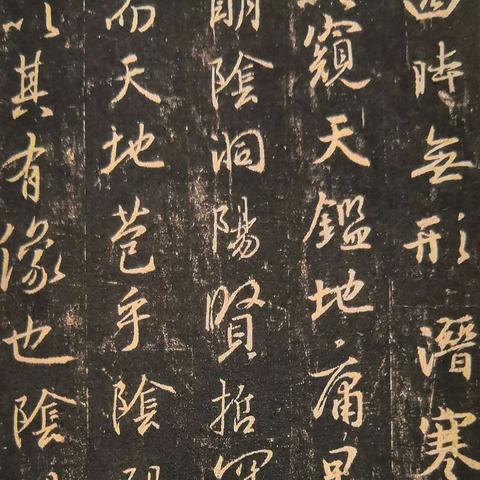 四時無形潛寒
以窺天鑑地庸
明陰洞陽賢哲罕
而天地苞乎陰
以其有像也陰